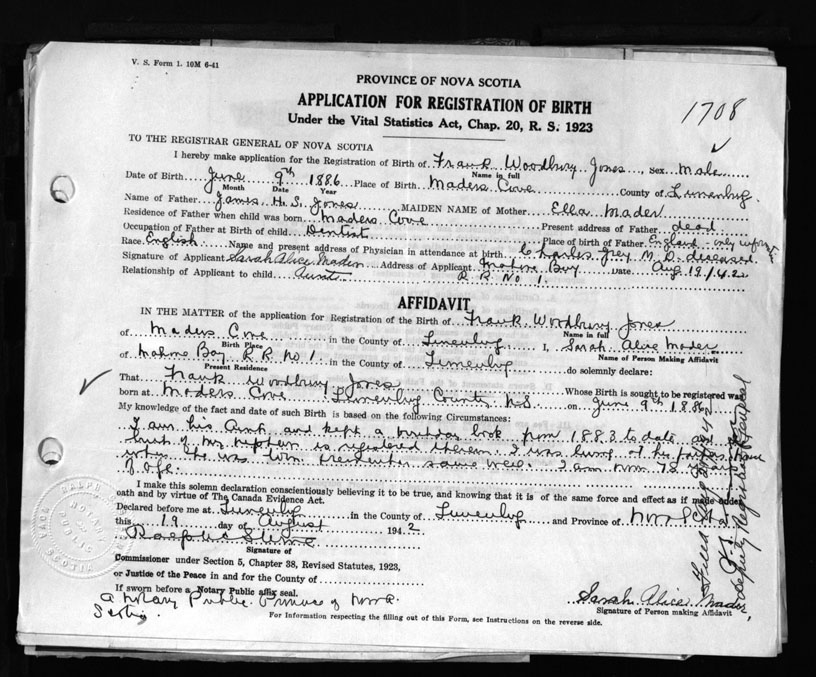 V. S. Form 1. 10M 6-41
PROVINCE OF NOVA SCOTIA
APPLICATION FOR REGISTRATION OF BIRTH
Under the Vital Statistics Act, Chap. 20, R. S. 1923
1708
TO THE REGISTRAR GENERAL OF NOVA SCOTIA
I hereby make application for the Registration of Birth of Frank Woodbury Jones, sex Male
Name in full
Date of Birth June 9th 1886 Place of Birth Maders Cove County of Lunenburg.
Month Date Year
Name of Father James H. S. Jones MAIDEN NAME of Mother Ella Mader
Residence of Father when child was born Maders Cove Present address of Father dead
Occupation of Father at Birth of child Dentist Place of birth of Father England - only
Race English Name and present address of Physician in attendance at birth Charles Grey M. D. deceased.
Signature of Applicant Sarah Alice Mader Address of Applicant Mahone Bay Date Aug 19/42
Relationship of Applicant to child Aunt R. R. No 1.
AFFIDAVIT
IN THE MATTER of the application for Registration of the Birth of Frank Woodbury Jones
Name in full
of Maders Cove in the County of Lunenburg I, Sarah Alice Mader
Birth Place Name of Person Making Affidavit
of Mahone Bay R.R. No. 1. in the County of Lunenburg do solemnly declare:
Present Residence
That Frank Woodbury Jones Whose Birth is sought to be registered was
born at Maders Cove Lunenburg County N.S. on June 9th 1886
My knowledge of the fact and date of such Birth is based on the following Circumstances:
I am his Aunt and kept a birthday book from 1883 to date and
birth of my nephew is registered therein. I was living at his parents home
when he was born. Remember same well. I am now 78 years
of age.
I make this solemn declaration conscientiously believing it to be true, and knowing that it is of the same force and effect as if made under
oath and by virtue of The Canada Evidence Act.
Declared before me at Lunenburg in the County of Lunenburg and Province of Nova Scotia
this 19 day of August 1942
Signature of
Commissioner under Section 5, Chapter 38, Revised Statutes, 1923,
or Justice of the Peace in and for the County of
If sworn before a Notary Public affix seal.
a Notary Public Province of Nova
Scotia
Sarah Alice Mader
Signature of Person making Affidavit
For Information respecting the filling out of this Form, see Instructions on the reverse side.
Filed Aug 1942
Deputy Registrar General
RALPH
NOTARY
PUBLIC
NOVA SCOTIA